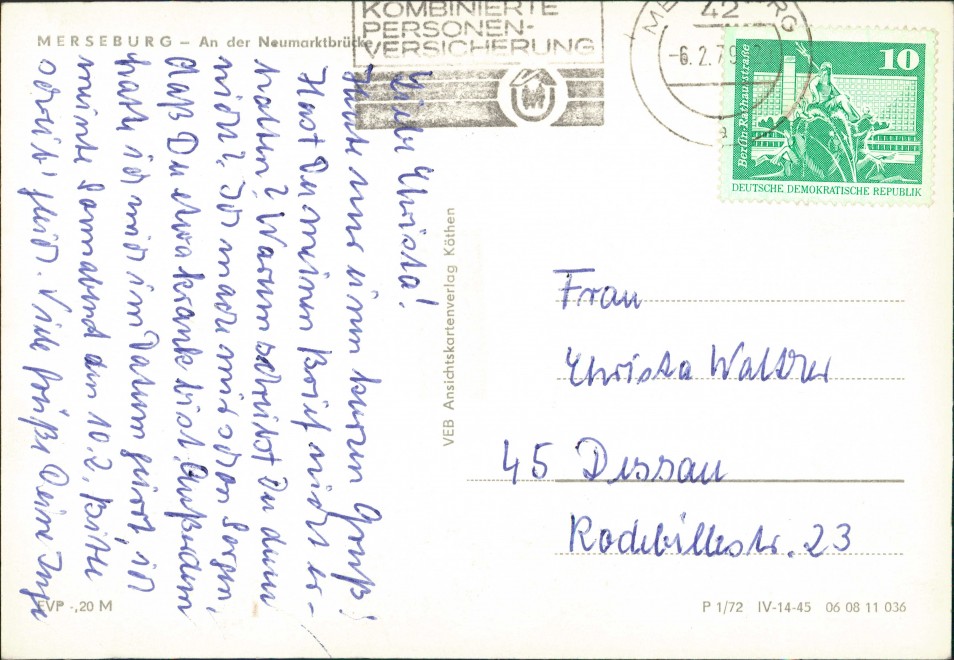 MERSEBURG – An der Neumarktbrücke
KOMBINIERTE
PERSONEN-
VERSICHERUNG
42
-6.2.79
Berlin, Rathausstraße
10
DEUTSCHE DEMOKRATISCHE REPUBLIK
Liebe Christa!
Heute nur einen kurzen Gruß!
Hast Du meinen Brief nicht er-
halten? Warum schreibst Du denn
nicht? Ich mache mir schon Sorgen,
daß Du etwa krank bist. Außerdem
hatte ich mich im Datum geirrt, ich
meinte Sonnabend den 10.2. Bitte
schreib' gleich. Viele Grüße Deine Inge
VEB Ansichtskartenverlag Köthen
Frau
Christa Walther
45 Dessau
Radebillestr. 23
EVP -,20 M
P 1/72 IV-14-45 06 08 11 036